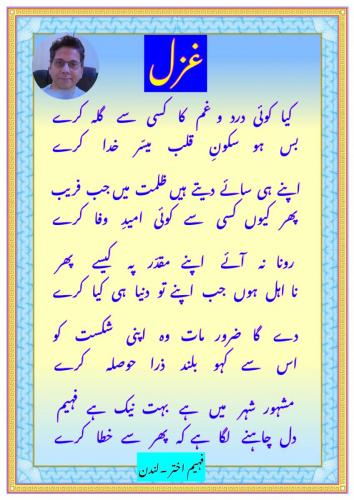 غزل
کیا کوئی درد و غم کا کسی سے گلہ کرے
بس ہو سکونِ قلب میسّر خدا کرے
اپنے ہی سائے دیتے ہیں ظلمت میں جب فریب
پھر کیوں کسی سے کوئی امیدِ وفا کرے
رونا نہ آئے اپنے مقدّر پہ کیسے پھر
نا اہل ہوں جب اپنے تو دنیا ہی کیا کرے
دے گا ضرور مات وہ اپنی شکست کو
اس سے کہو بلند ذرا حوصلہ کرے
مشہور شہر میں ہے بہت نیک ہے فہیم
دل چاہنے لگا ہے کہ پھر سے خطا کرے
فہیم اختر ۔ لندن